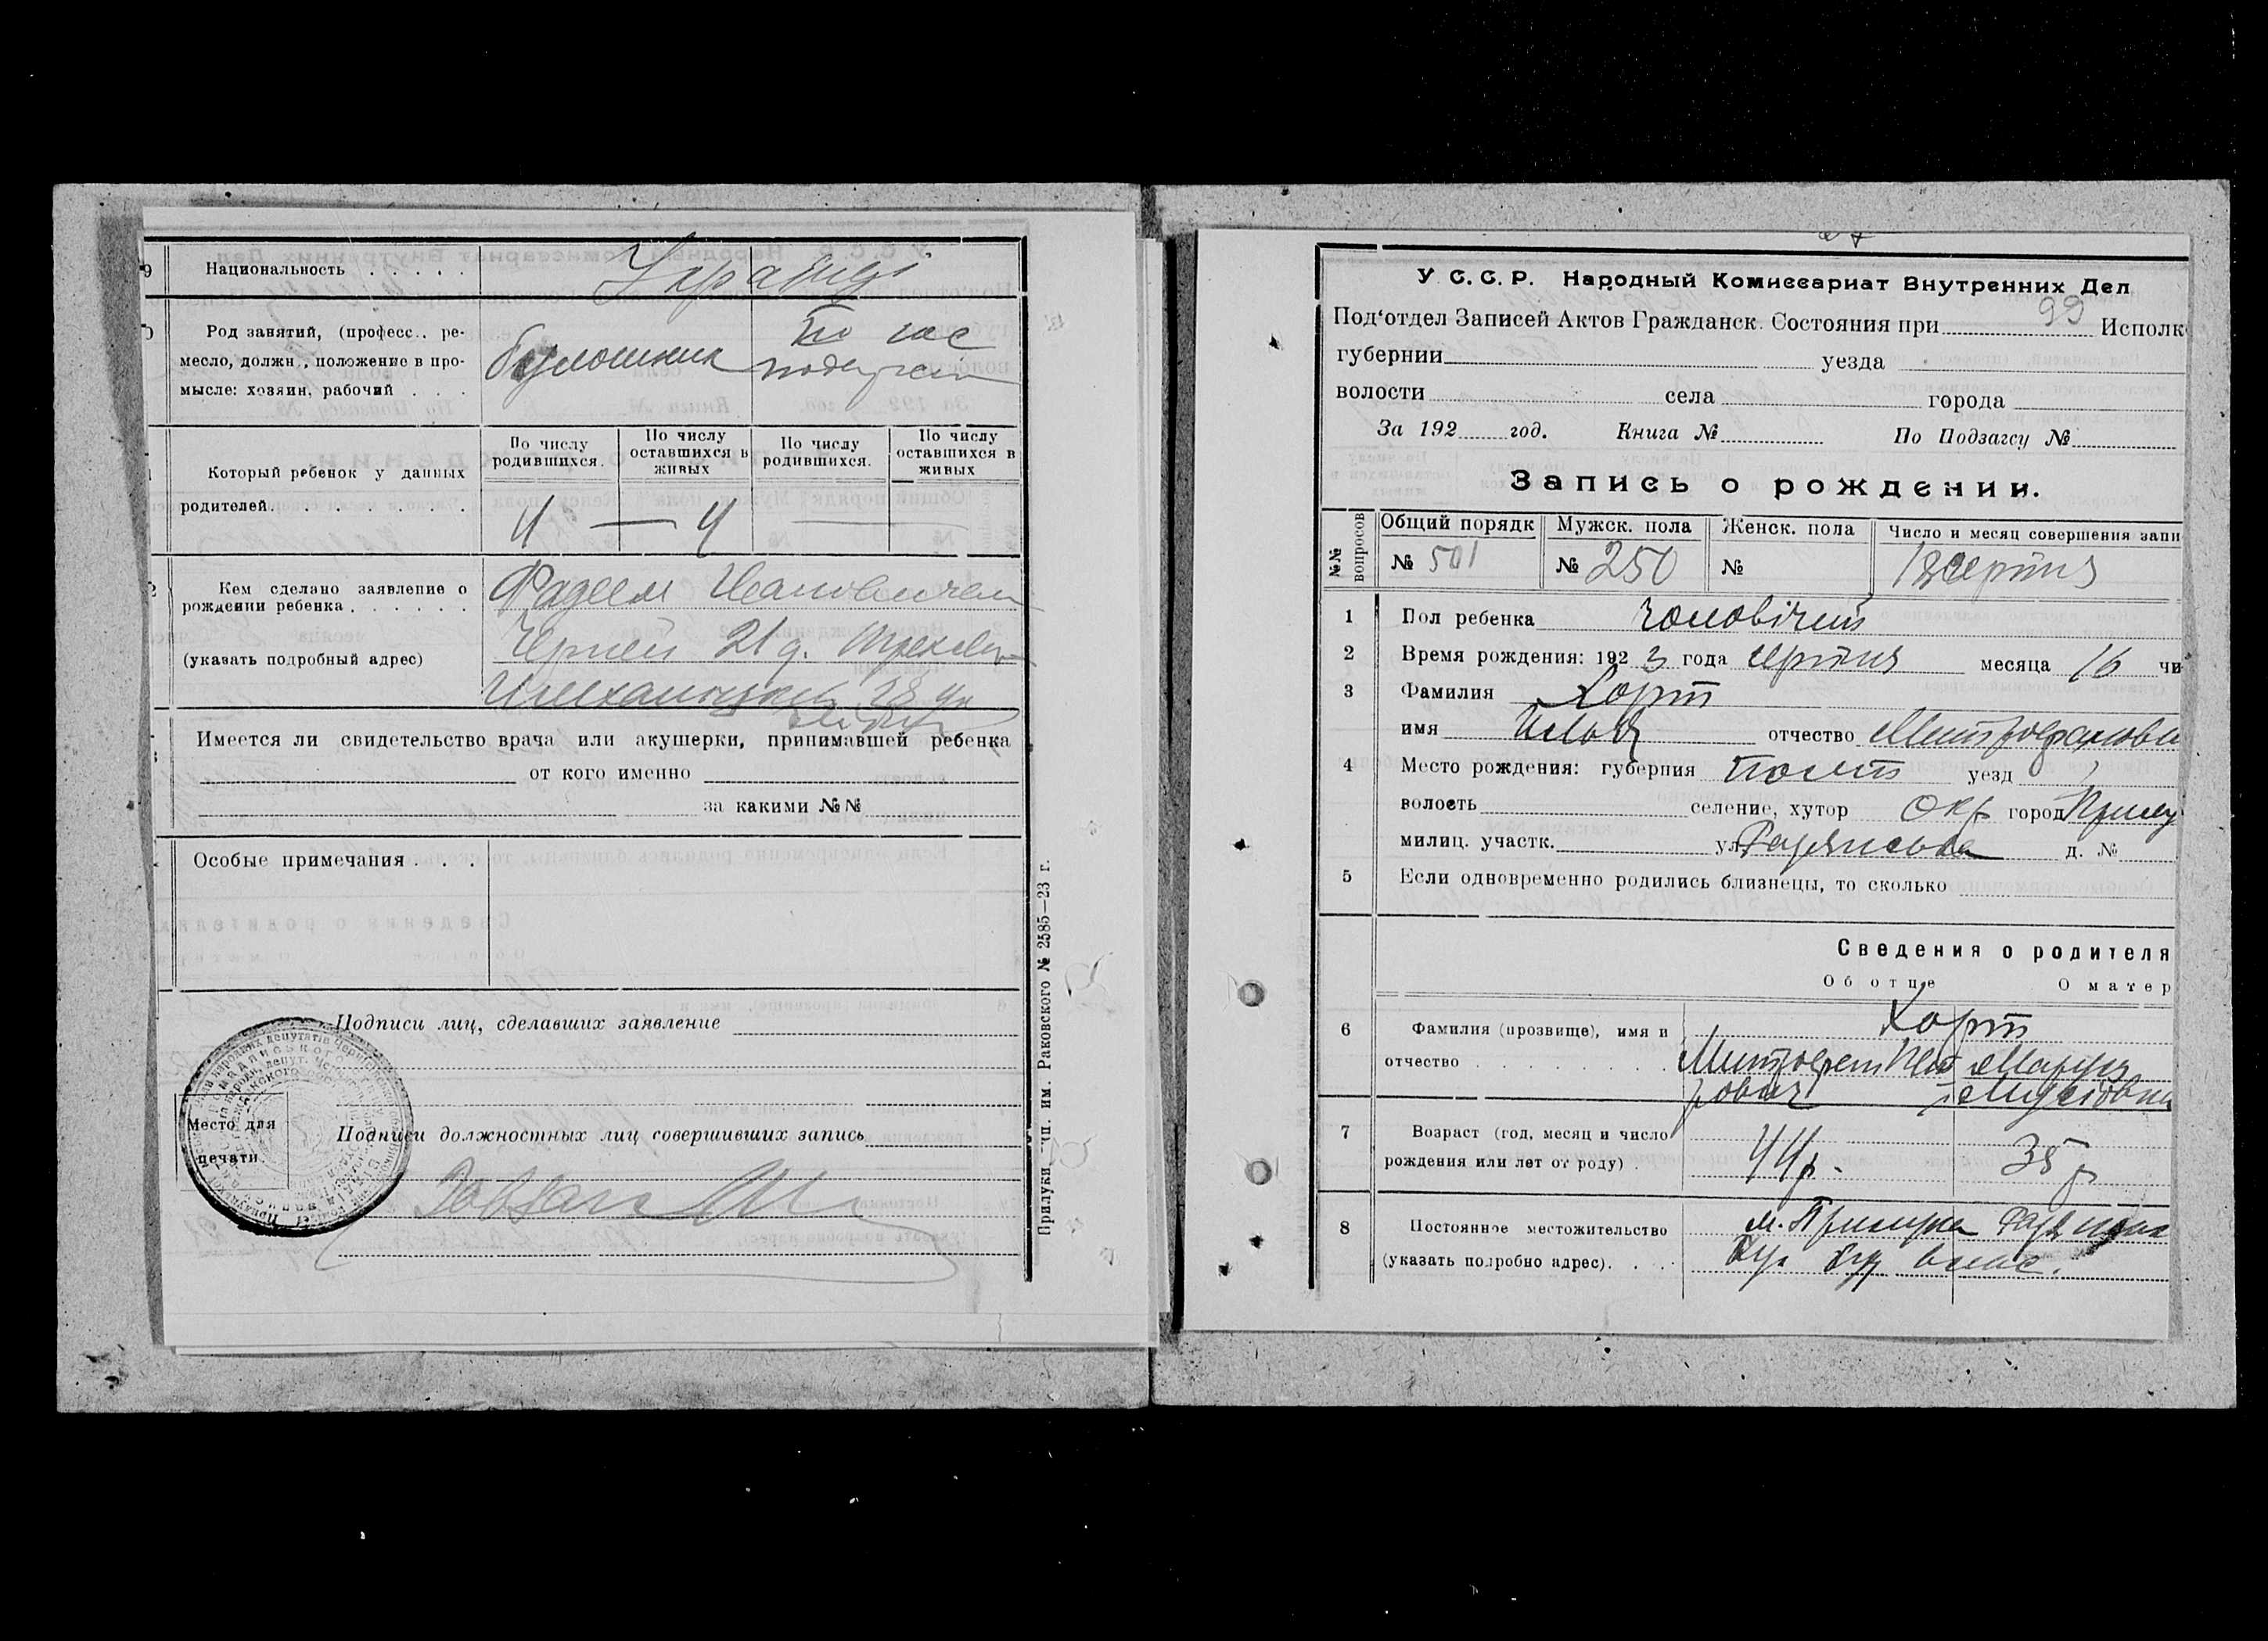 9 Национальность . . . . . Українці
Род занятий, (професс.. ре-
месло, должн., положение в про-
мысле: хозяин, рабочий . . .
булошник
По числу родившихся. По числу оставшихся в живых По числу родившихся. По числу оставшихся в живых
Который ребенок у данных
родителей. . . . . . .
4 — 4
Кем сделано заявление о
рождении ребенка . . . . . .
(указать подробный адрес)
Фадеем Ивановичем
21 д.
28
Имеется ли свидетельство врача или акушерки, принимавшей ребенка
от кого именно
за какими №№
Особые примечания . . .
Подписи лиц, сделавших заявление
Подписи должностных лиц совершивших запись
Место для
печати.
Прилуки, тип. им. Раковского № 2585—23 г.
У С. С. Р. Народный Комиссариат Внутренних Дел
99
Под'отдел Записей Актов Гражданск. Состояния при Исполк
губернии уезда
волости села города
За 192 год. Книга № По Подзагсу №
Запись о рождении.
№№ вопросов
Общий порядк Мужск. пола Женск. пола Число и месяц совершения запи
№ 501 № 250 № 18 серпня
1 Пол ребенка чоловічий
2 Время рождения: 192 3 года серпня месяца 16 чи
3 Фамилия Хорт
имя отчество Митрофанови
4 Место рождения: губерния Полт уезд
волость селение, хутор окр город Прилу
милиц. участк. ул. Радянська д. №
5 Если одновременно родились близнецы, то сколько
Сведения о родителя
Об отце О матер
Хорт
6 Фамилия (прозвище), имя и
отчество . . . . . . . .
Митрофан
7 Возраст (год, месяц и число
рождения или лет от роду) .
44 р. 35 р
8 Постоянное местожительство
(указать подробно адрес). . . .
м. Прилука